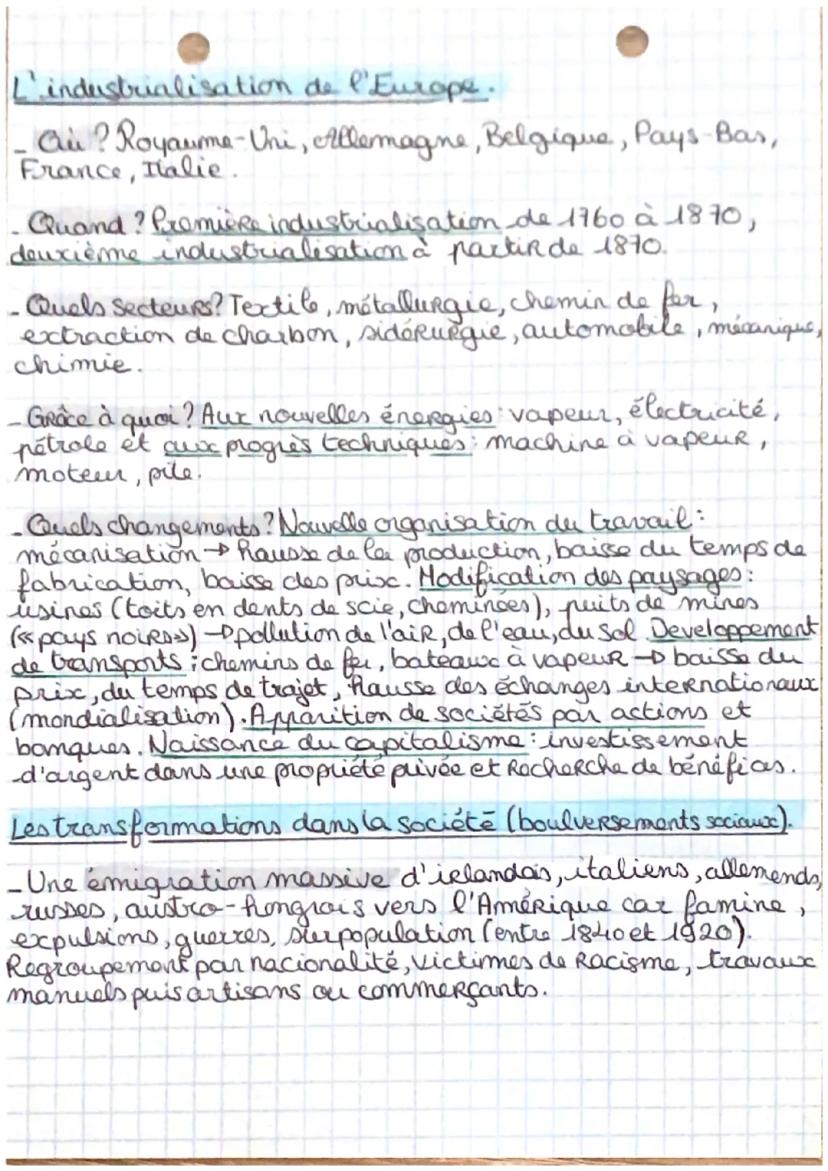 L'industrialisation de l'Europe.
- Où ? Royaume-Uni, Allemagne, Belgique, Pays-Bas,
France, Italie.
- Quand ? Première industrialisation de 1760 à 1870,
deuxième industrialisation à partir de 1870.
- Quels secteurs ? Textile, métallurgie, chemin de fer,
extraction de charbon, sidérurgie, automobile, mécanique,
chimie.
- Grâce à quoi ? Aux nouvelles énergies : vapeur, électricité,
pétrole et aux progrès techniques : machine à vapeur,
moteur, pile.
- Quels changements ? Nouvelle organisation du travail :
mécanisation → Hausse de la production, baisse du temps de
fabrication, baisse des prix. Modification des paysages :
usines (toits en dents de scie, cheminées), puits de mines
(« pays noirs ») → pollution de l'air, de l'eau, du sol. Developpement
de transports : chemins de fer, bateaux à vapeur → baisse du
prix, du temps de trajet, Hausse des échanges internationaux
(mondialisation). Apparition de sociétés par actions et
banques. Naissance du capitalisme : investissement
d'argent dans une propriété privée et Recherche de bénéfices.
Les transformations dans la société (boulversements sociaux).
- Une émigration massive d'irlandais, italiens, allemends,
russes, austro-hongrois vers l'Amérique car famine,
expulsions, guerres, surpopulation (entre 1840 et 1920).
Regroupement par nacionalité, victimes de Racisme, travaux
manuels puis artisans ou commerçants.